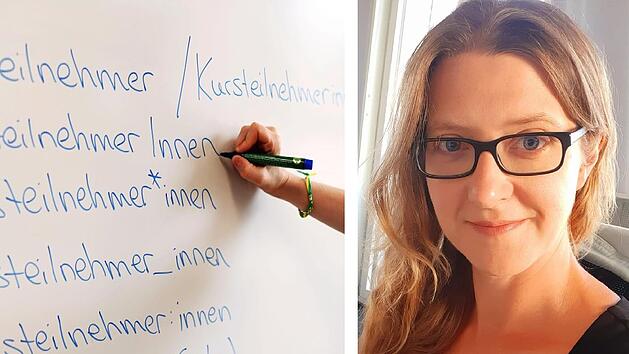 eilnehmer / Kursteilnehmerin
teilnehmerInnen
steilnehmer*innen
steilnehmer_innen
steilnehmer:innen